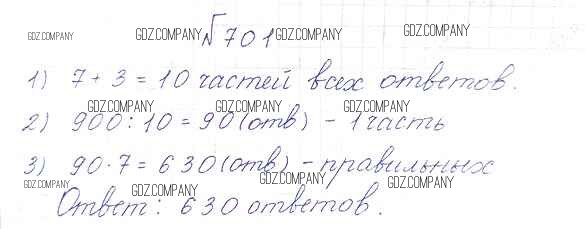 GDZ.COMPANY GDZ.COMPANY № 701 GDZ.COMPANY GDZ.COMPANY
1) 7 + 3 = 10 частей всех ответов.
GDZ.COMPANY GDZ.COMPANY GDZ.COMPANY
2) 900 : 10 = 90 (отв) - 1 часть
3) 90 · 7 = 630 (отв) - правильных
GDZ.COMPANY GDZ.COMPANY GDZ.COMPANY GDZ.COMPANY
Ответ: 630 ответов.